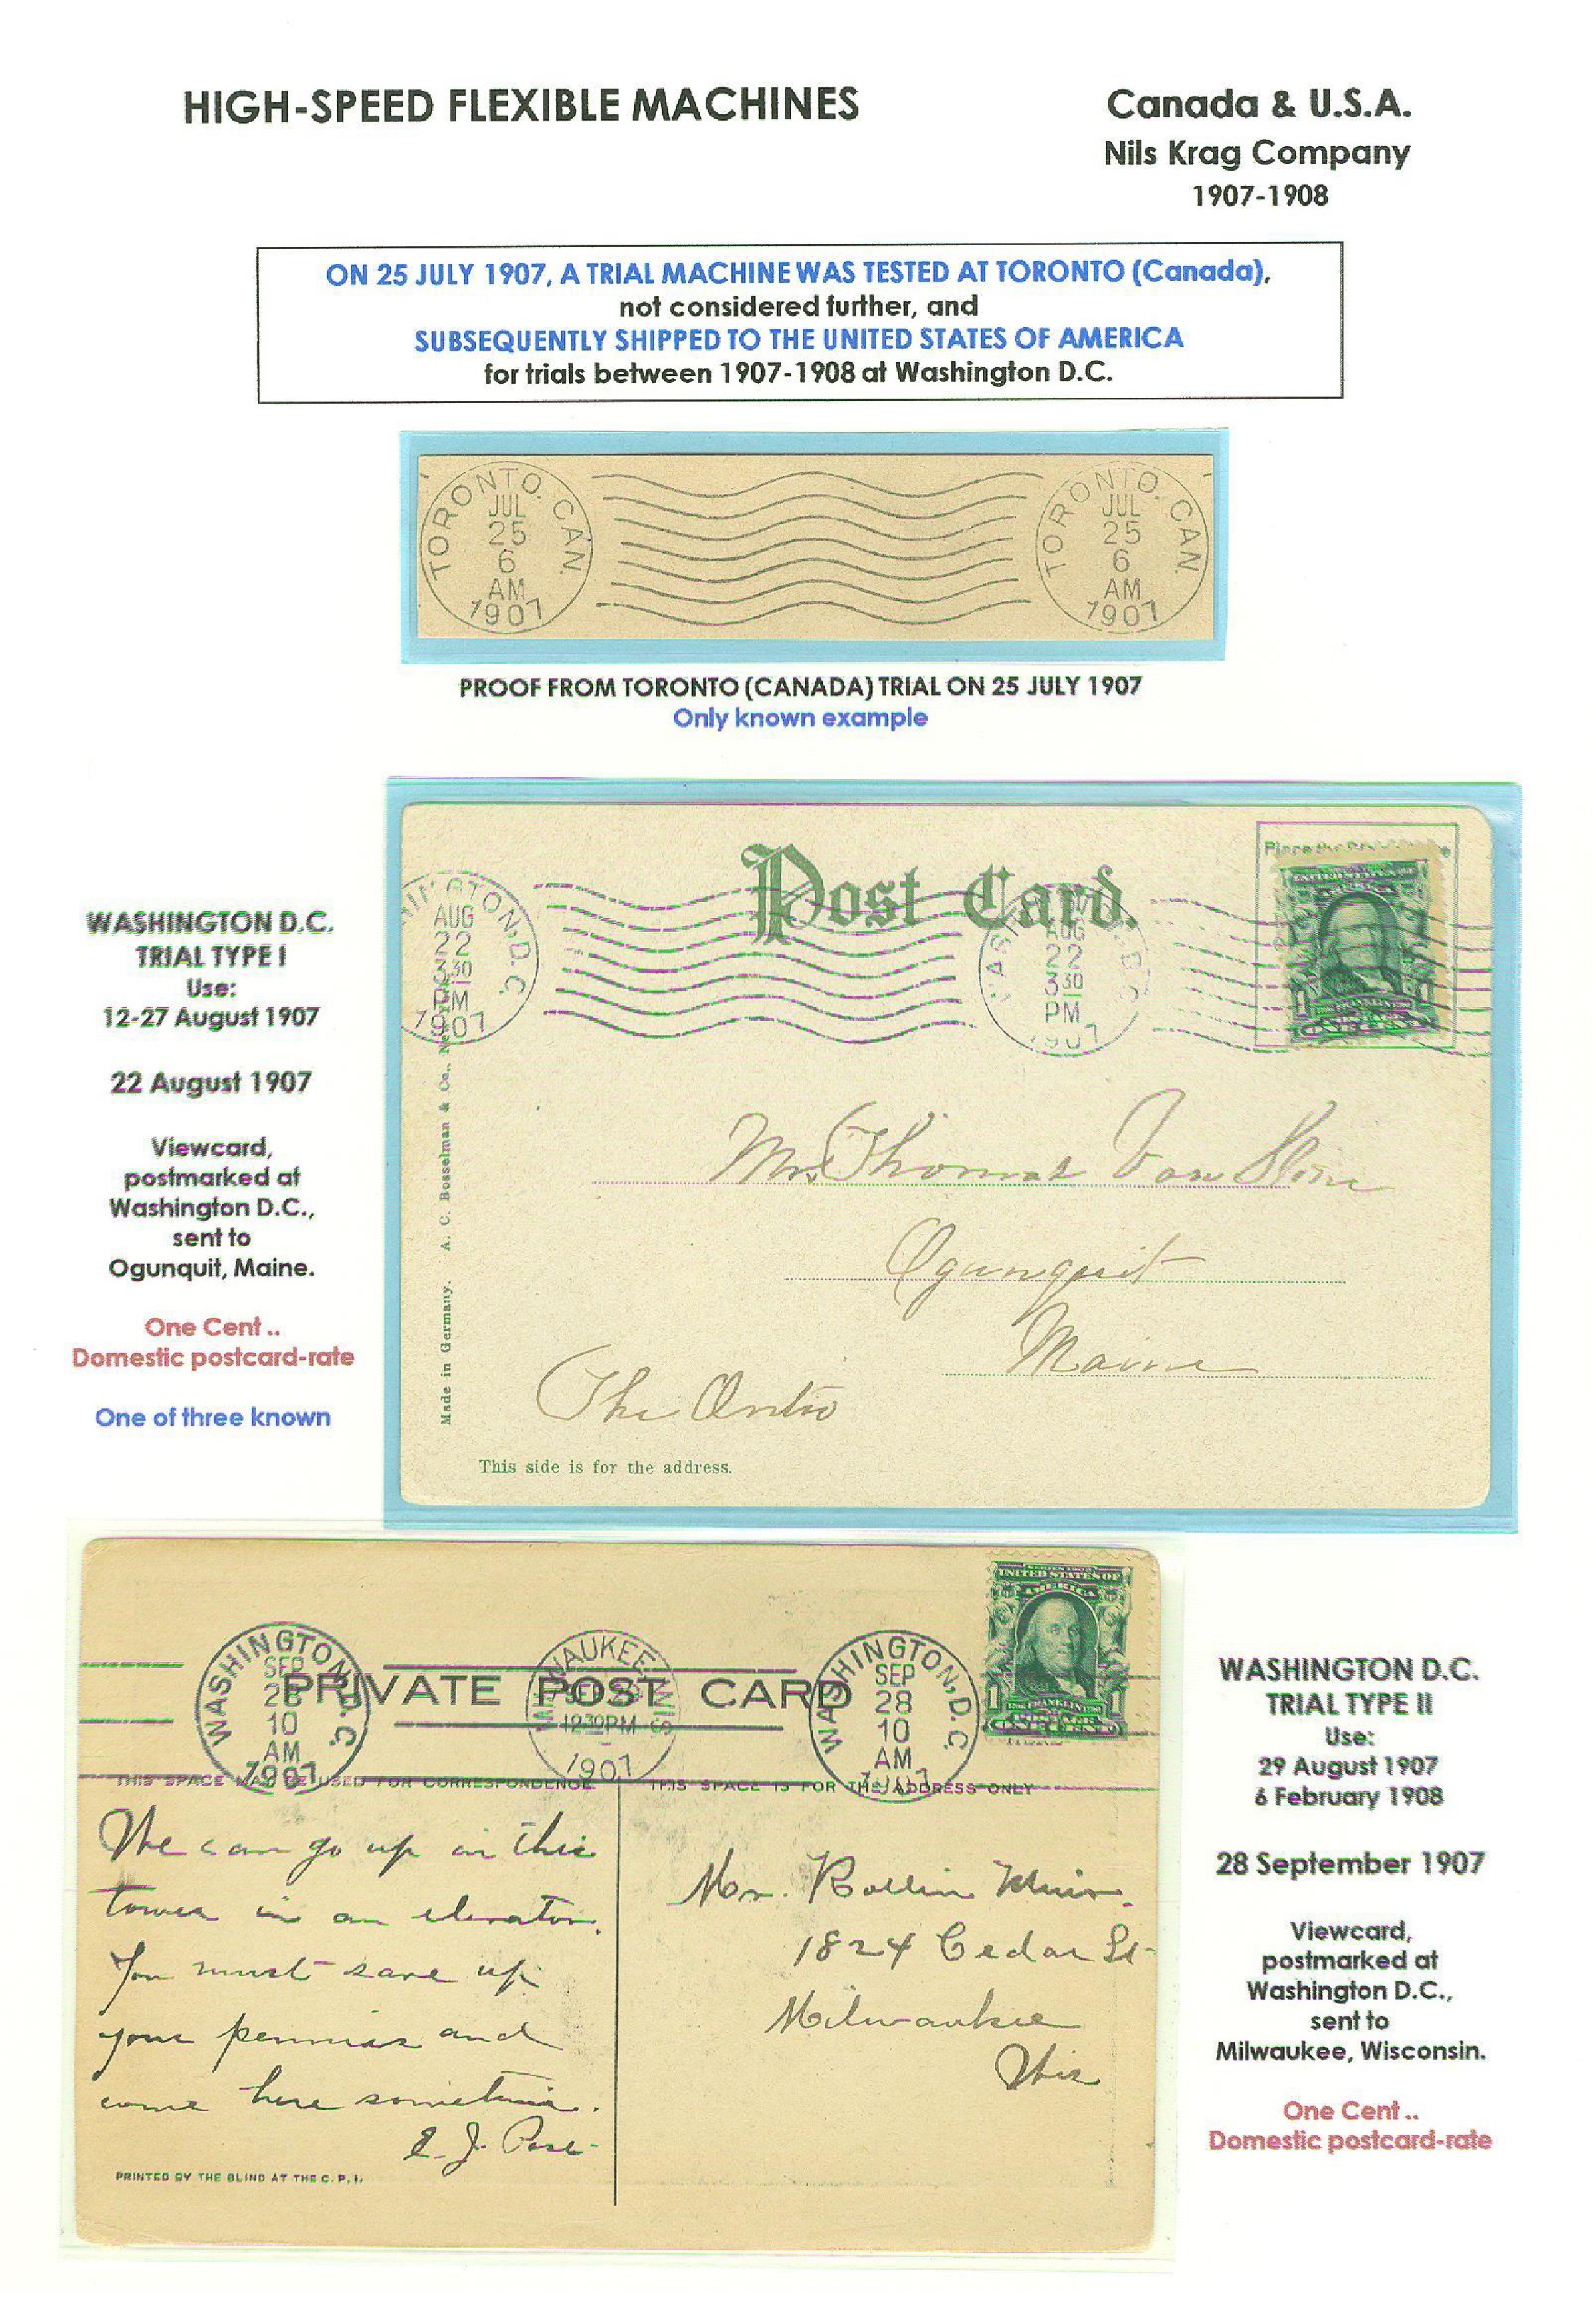 HIGH-SPEED FLEXIBLE MACHINES
Canada & U.S.A.
Nils Krag Company
1907-1908
ON 25 JULY 1907, A TRIAL MACHINE WAS TESTED AT TORONTO (Canada),
not considered further, and
SUBSEQUENTLY SHIPPED TO THE UNITED STATES OF AMERICA
for trials between 1907-1908 at Washington D.C.
TORONTO. CAN.
JUL
25
6
AM
1907
TORONTO. CAN.
JUL
25
6
AM
1907
PROOF FROM TORONTO (CANADA) TRIAL ON 25 JULY 1907
Only known example
WASHINGTON D.C.
TRIAL TYPE I
Use:
12-27 August 1907
22 August 1907
Viewcard,
postmarked at
Washington D.C.,
sent to
Ogunquit, Maine.
One Cent ..
Domestic postcard-rate
One of three known
Post Card.
INGTON, D.C.
AUG
22
3 30
PM
1907
AUG
22
3 30
PM
1907
Place the
Thomas Van
Ogunquit
Maine
The
Made in Germany. A. C. Bosselman & Co.,
This side is for the address.
UNITED STATES OF
AMERICA
1 1
FRANKLIN
PRIVATE POST CARD
WASHINGTON, D.C.
SEP
28
10
AM
1907
MILWAUKEE, WIS.
SEP
12 30 PM
1907
WASHINGTON, D.C.
SEP
28
10
AM
1907
THIS SPACE MAY BE USED FOR CORRESPONDENCE
THIS SPACE IS FOR THE ADDRESS ONLY
We can go up in this
tower in an elevator.
You must save up
your pennies and
come here sometime.
E. J. Pase
Mr. Rollin
1824 Cedar St
Milwaukee
Wis
PRINTED BY THE BLIND AT THE C. P. I.
WASHINGTON D.C.
TRIAL TYPE II
Use:
29 August 1907
6 February 1908
28 September 1907
Viewcard,
postmarked at
Washington D.C.,
sent to
Milwaukee, Wisconsin.
One Cent ..
Domestic postcard-rate